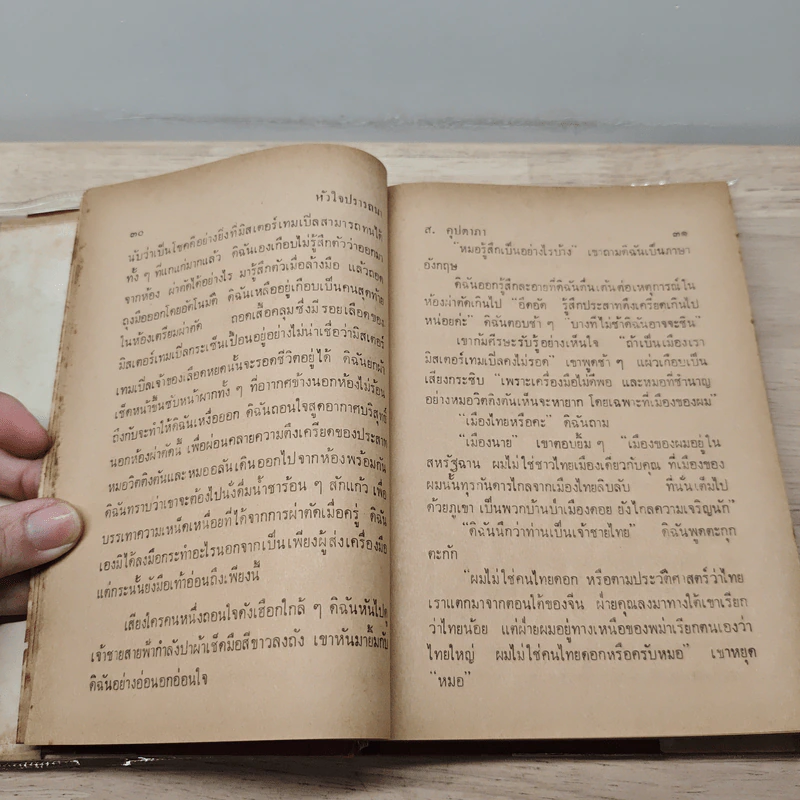 หัวใจปรารถนา
๓๐
นับว่าเป็นโชคดีอย่างยิ่งที่มิสเตอร์เทมเปิ้ลสามารถทนได้
ทั้ง ๆ ที่แกแก่มากแล้ว ดิฉันเองเกือบไม่รู้สึกตัวว่าออกมา
จากห้อง ผ่าตัดได้อย่างไร มารู้สึกตัวเมื่อล้างมือ แล้วถอด
ถุงมือออกโดยอัตโนมัติ ดิฉันเหลืออยู่เกือบเป็นคนสุดท้าย
ในห้องเตรียมผ่าตัด ถอดเสื้อคลุมซึ่งมีรอยเลือดของ
มิสเตอร์เทมเปิ้ลกระเซ็นเปื้อนอยู่อย่างไม่น่าเชื่อว่ามิสเตอร์
เทมเปิ้ลเจ้าของเลือดหยดนั้นจะรอดชีวิตอยู่ได้ ดิฉันยกผ้า
เช็ดหน้าขึ้นซับหน้าผากทั้ง ๆ ที่อากาศข้างนอกห้องไม่ร้อน
ถึงกับจะทำให้ดิฉันเหงื่อออก ดิฉันถอนใจสูดอากาศบริสุทธิ์
นอกห้องผ่าตัดนี้ เพื่อผ่อนคลายความตึงเครียดของประสาท
หมอวิตติงตันและหมออลันเดินออกไปจากห้องพร้อมกัน
ดิฉันทราบว่าเขาจะต้องไปนั่งดื่มน้ำชาร้อน ๆ สักแก้ว เพื่อ
บรรเทาความเหน็ดเหนื่อยที่ได้จากการผ่าตัดเมื่อครู่ ดิฉัน
เองมิได้ลงมือกระทำอะไรนอกจากเป็นเพียงผู้ส่งเครื่องมือ
แต่กระนั้นยังมือเท้าอ่อนถึงเพียงนี้
เสียงใครคนหนึ่งถอนใจดังเฮือกใกล้ ๆ ดิฉันหันไปดู
เจ้าชายสายฟ้ากำลังปาผ้าเช็ดมือสีขาวลงถัง เขาหันมายิ้มกับ
ดิฉันอย่างอ่อนอกอ่อนใจ
ส. คุปตาภา ๓๑
"หมอรู้สึกเป็นอย่างไรบ้าง" เขาถามดิฉันเป็นภาษา
อังกฤษ
ดิฉันออกรู้สึกละอายที่ดิฉันตื่นเต้นต่อเหตุการณ์ใน
ห้องผ่าตัดเกินไป "อึดอัด รู้สึกประสาทตึงเครียดเกินไป
หน่อยค่ะ" ดิฉันตอบช้า ๆ "บางทีไม่ช้าดิฉันอาจจะชิน"
เขาก้มศีรษะรับรู้อย่างเห็นใจ "ถ้าเป็นเมืองเรา
มิสเตอร์เทมเปิ้ลคงไม่รอด" เขาพูดช้า ๆ แผ่วเกือบเป็น
เสียงกระซิบ "เพราะเครื่องมือไม่ดีพอ และหมอที่ชำนาญ
อย่างหมอวิตติงตันเห็นจะหายาก โดยเฉพาะที่เมืองของผม"
"เมืองไทยหรือคะ" ดิฉันถาม
"เมืองนาย" เขาตอบยิ้ม ๆ "เมืองของผมอยู่ใน
สหรัฐฉาน ผมไม่ใช่ชาวไทยเมืองเดียวกับคุณ ที่เมืองของ
ผมนั้นทุรกันดารไกลจากเมืองไทยลิบลับ ที่นั่นเต็มไป
ด้วยภูเขา เป็นพวกบ้านป่าเมืองดอย ยังไกลความเจริญนัก"
"ดิฉันนึกว่าท่านเป็นเจ้าชายไทย" ดิฉันพูดตะกุก
ตะกัก
"ผมไม่ใช่คนไทยดอก หรือตามประวัติศาสตร์ว่าไทย
เราแตกมาจากตอนใต้ของจีน ฝ่ายคุณลงมาทางใต้เขาเรียก
ว่าไทยน้อย แต่ฝ่ายผมอยู่ทางเหนือของพม่าเรียกตนเองว่า
ไทยใหญ่ ผมไม่ใช่คนไทยดอกหรือครับหมอ" เขาหยุด
"หมอ"